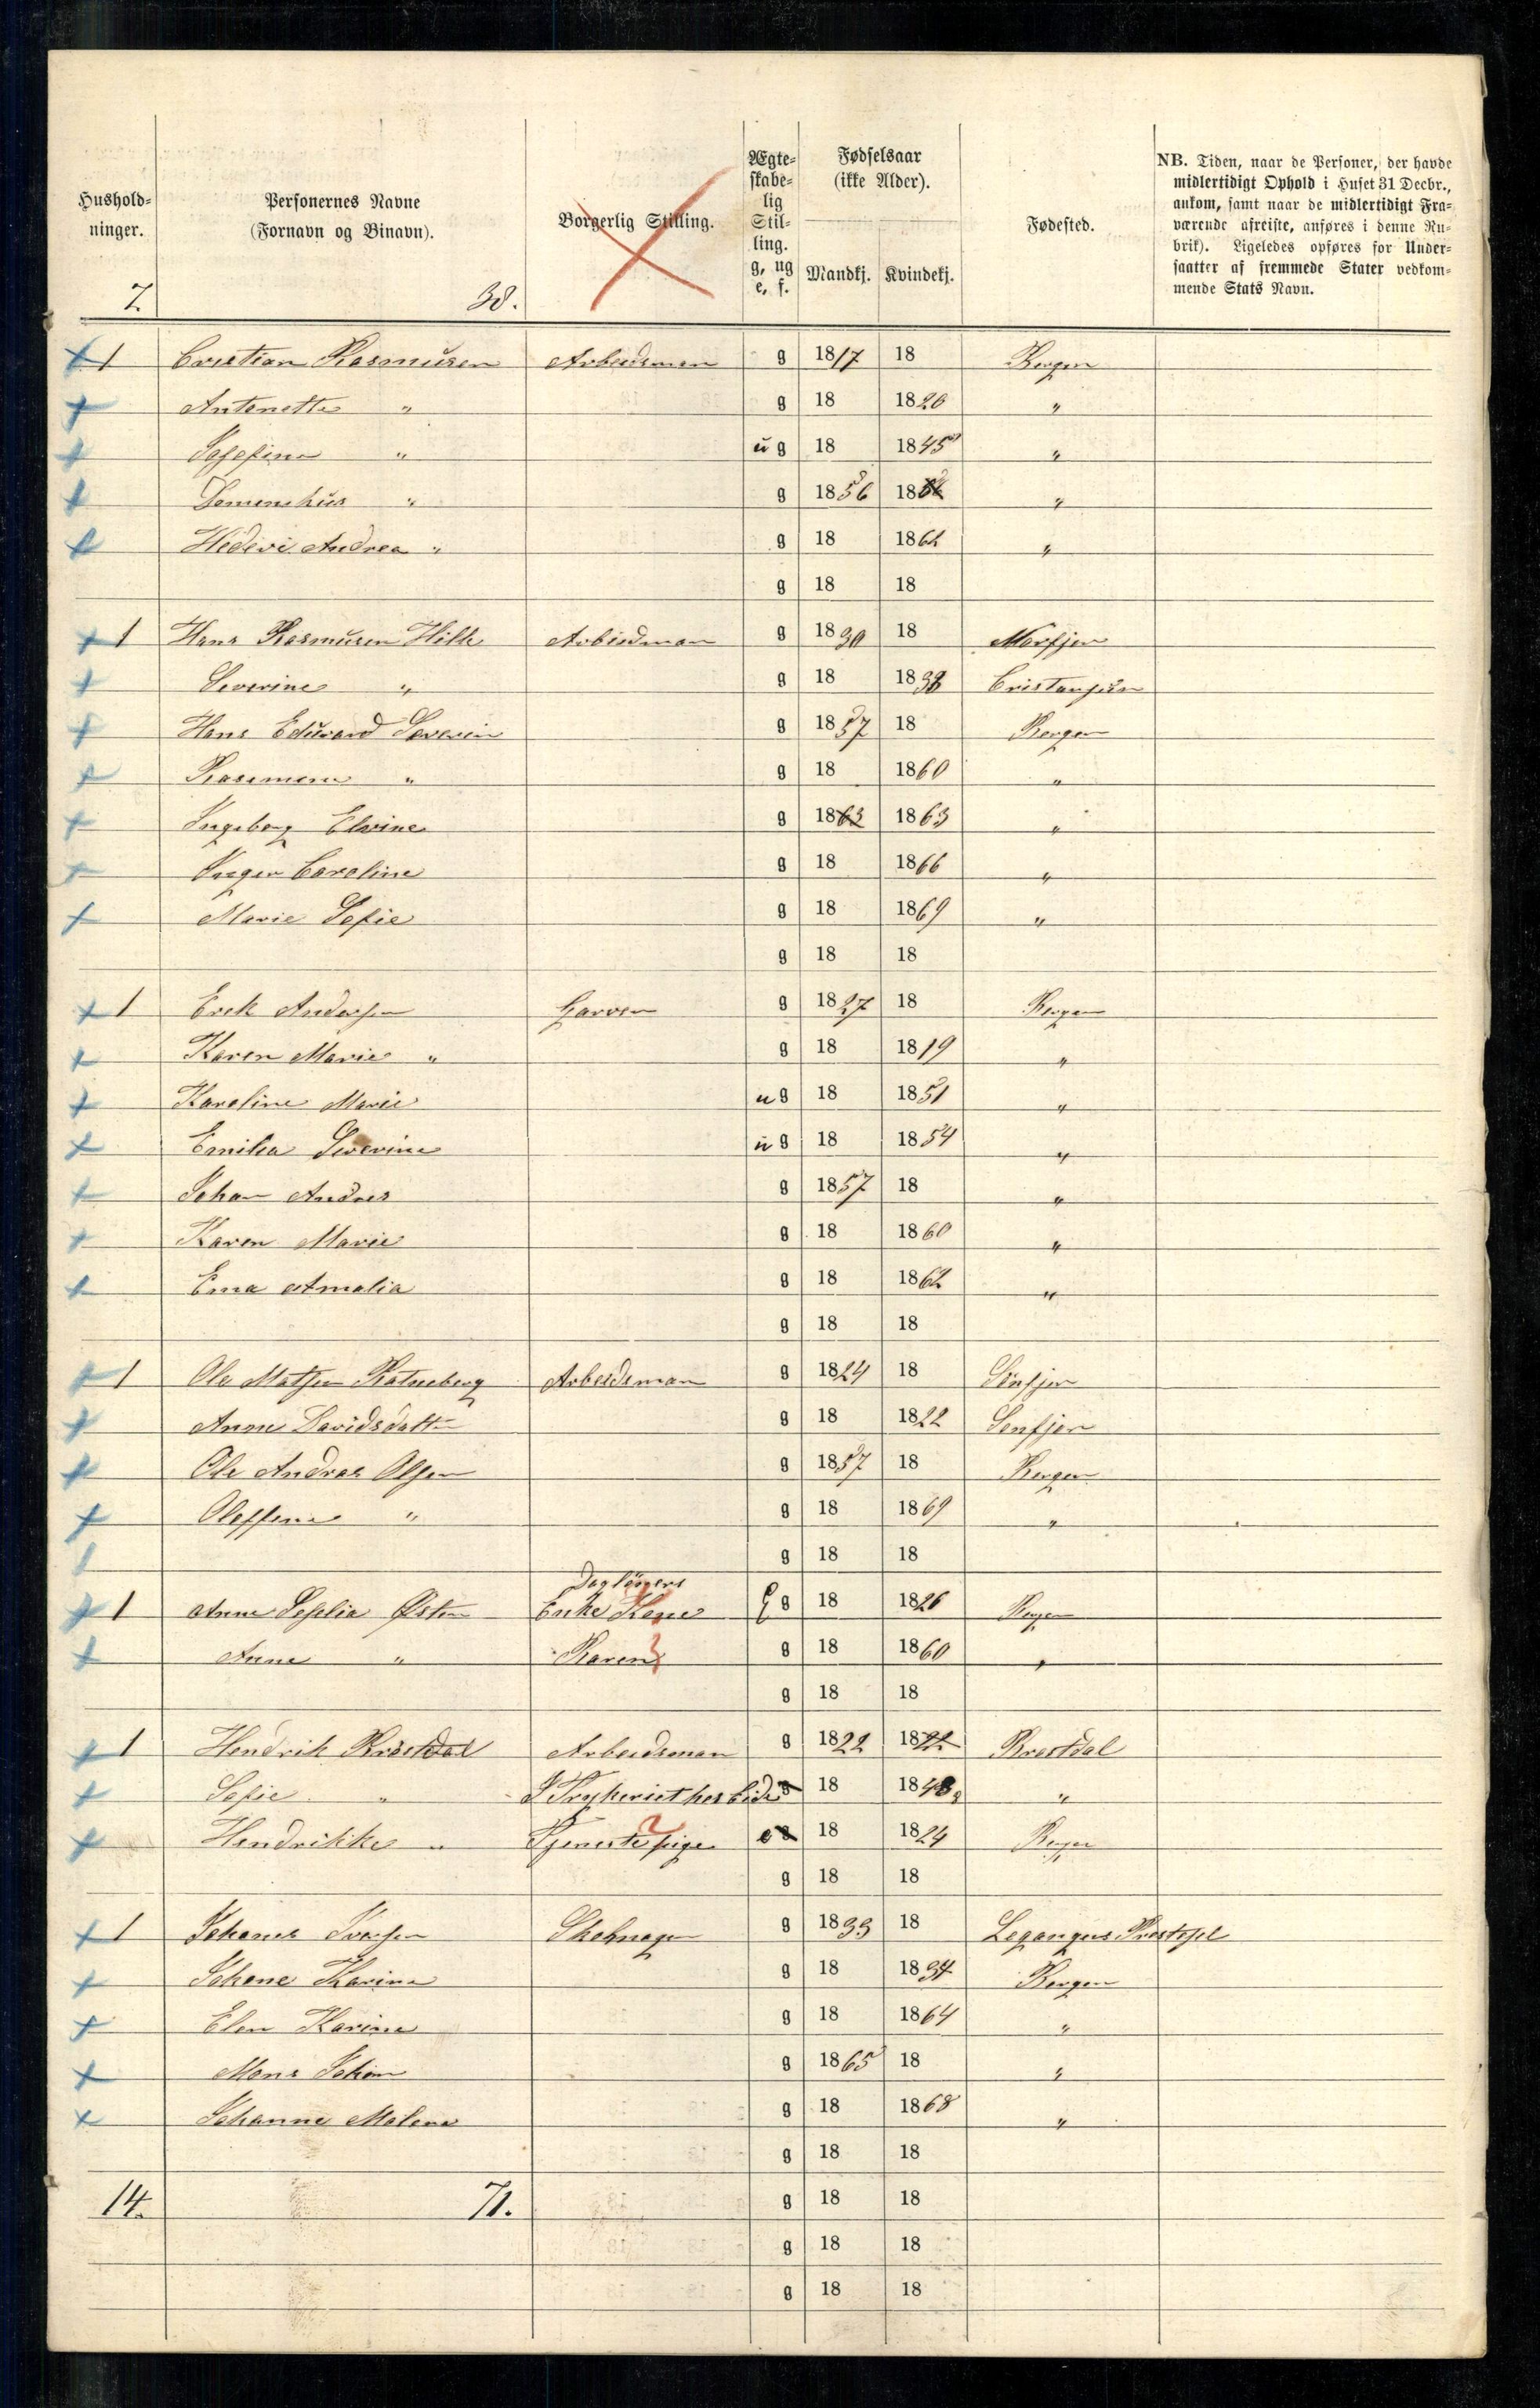 Hushold-
ninger.
Personernes Navne
(Fornavn og Binavn).
Borgerlig Stilling.
Ægte-
skabe-
lig
Stil-
ling.
g, ug
e, f.
Fødselsaar
(ikke Alder).
Mandkj. Kvindekj.
Fødested.
NB. Tiden, naar de Personer, der havde
midlertidigt Ophold i Huset 31 Decbr.,
ankom, samt naar de midlertidigt Fra-
værende afreiste, anføres i denne Ru-
brik). Ligeledes opføres for Under-
saatter af fremmede Stater vedkom-
mende Stats Navn.
7. 38.
1 Cristian Rasmusen Arbeidsman g 1817 18 Bergen
Antonette " g 18 1820 "
Josefine " u g 18 1845 "
" g 1856 18 "
Hedevi Andrea " g 18 1862 "
g 18 18
1 Hans Rasmusen Hille Arbeidman g 1830 18
Severine " g 18 1838 Cristansun
Hans Edvard Severin g 1857 18 Bergen
" g 18 1860 "
Ingeborg Elvine g 1863 1863 "
Inger Caroline g 18 1866 "
Marie Sofie g 18 1869 "
g 18 18
1 Erek Andersen Garver g 1827 18 Bergen
Karen Marie " g 18 1819 "
Karoline Marie u g 18 1851 "
Emilia Severine u g 18 1854 "
Johan Andres g 1857 18 "
Karen Marie g 18 1860 "
Ema Amalia g 18 1862 "
g 18 18
1 Ole Matsen Arbeidsman g 1824 18 Sønfjor
Anne Davidsdatter g 18 1822 Sønfjor
Ole Andreas Olsen g 1857 18 Bergen
Oleffine " g 18 1869 "
g 18 18
Dagløners
1 Anne Østen Enke Kone E g 18 1826 Bergen
Anne " g 18 1860 "
g 18 18
1 Hendrik Brestdal Arbeidsman g 1822 1822 Brestdal
Sofie " I Trykeriet hos g 18 1848 "
Hendrikke " Tjenestepige e g 18 1824 Bergen
g 18 18
1 Johanes Iversen Skomager g 1833 18 Legangers Prestejel
Johane Karine g 18 1834 Bergen
Elen Karine g 18 1864 "
Mons Johan g 1865 18 "
Johanne Malene g 18 1868 "
g 18 18
14. 71. g 18 18
g 18 18
g 18 18